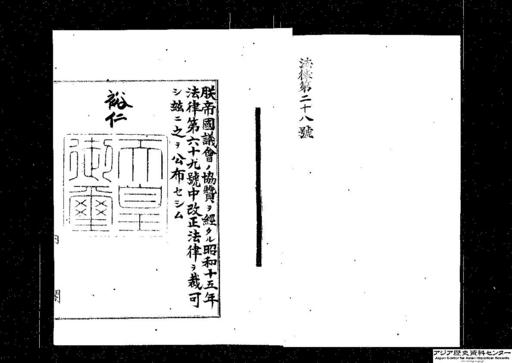 法律第二十八號
朕帝國議會ノ協贊ヲ經タル昭和十五年
法律第六十九號中改正法律ヲ裁可
シ茲ニ之ヲ公布セシム
裕仁
天皇
御璽
内閣
アジア歴史資料センター
Japan Center for Asian Historical Records